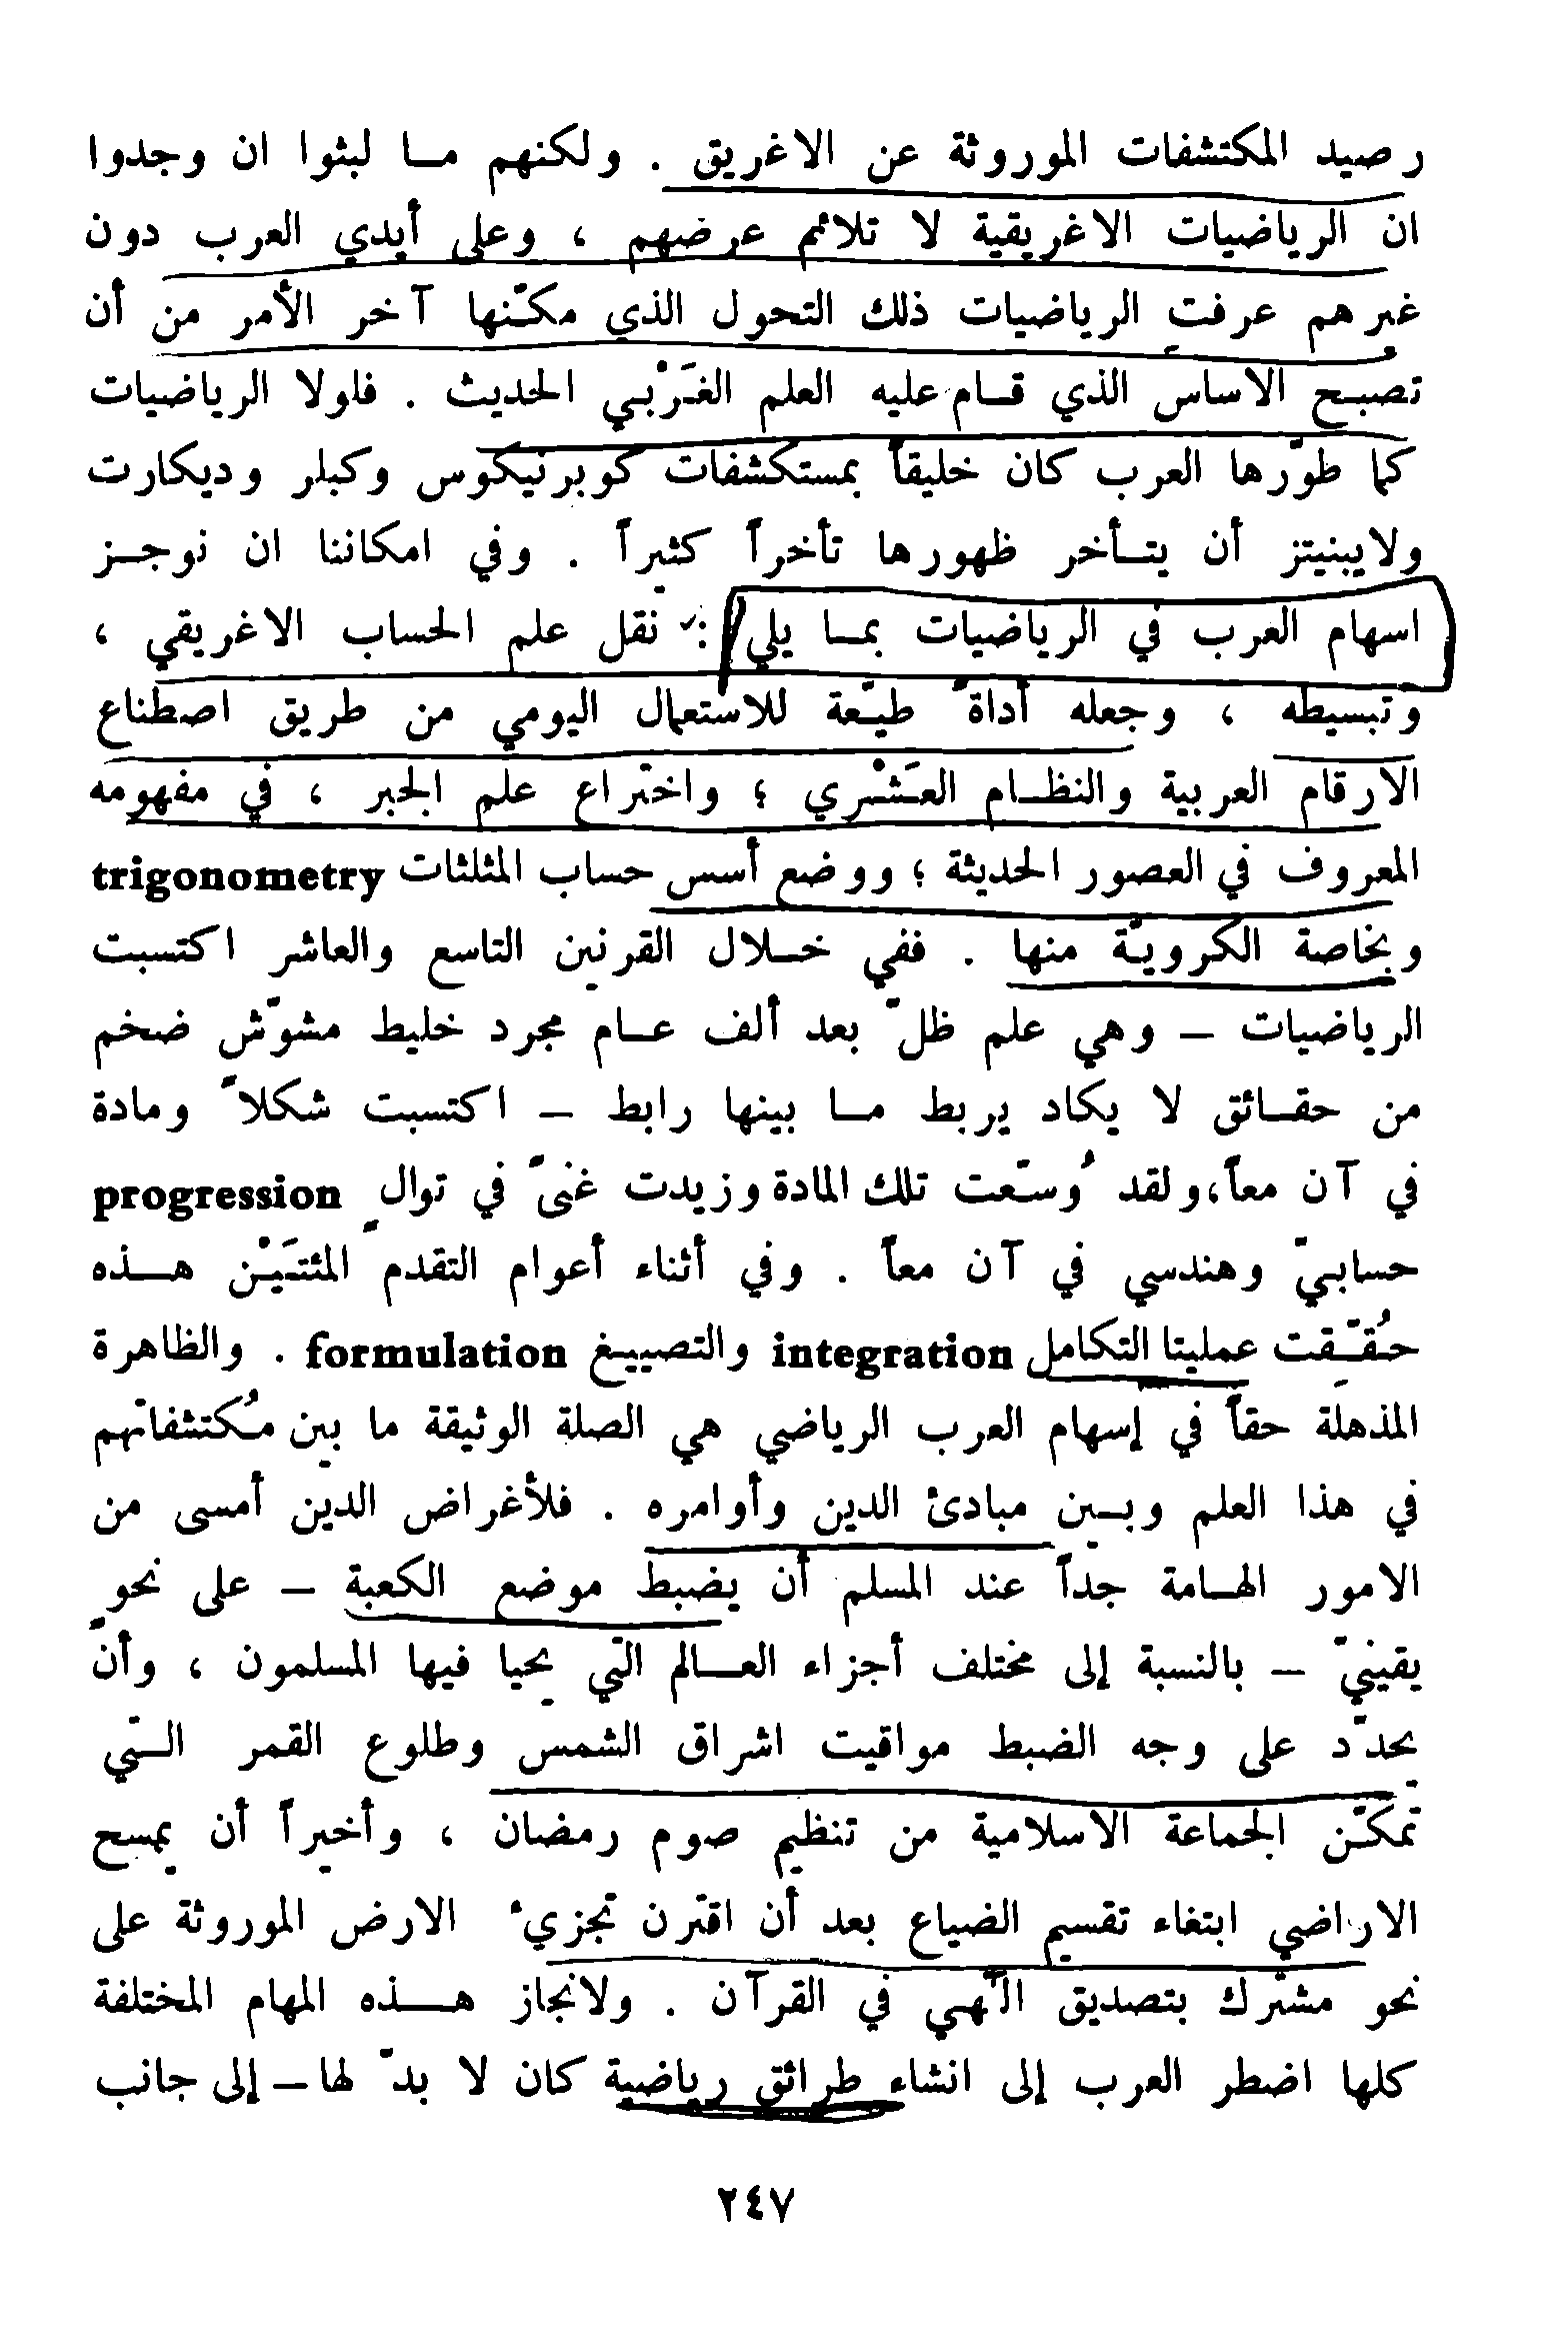 رصيد المكتشفات الموروثة عن الاغريق . ولكنهم مـا لبثوا ان وجدوا
ان الرياضيات الاغريقية لا تلائم عرضهم ، وعلى أيدي العرب دون
غيرهم عرفت الرياضيات ذلك التحول الذي مكّنها آخر الأمر من أن
تصبح الاساس الذي قـام عليه العلم الغَرْبي الحديث . فلولا الرياضيات
كما طوّرها العرب كان خليقاً بمستكشفات كوبرنيكوس وكبلر وديكارت
ولايبنيتز أن يتـأخر ظهورها تأخراً كثيراً . وفي امكاننا ان نوجـز
اسهام العرب في الرياضيات بمـا يلي : نقل علم الحساب الاغريقي ،
وتبسيطه ، وجعله أداةً طيّعة للاستعمال اليومي من طريق اصطناع
الارقام العربية والنظـام العَشْري ؛ واختراع علم الجبر ، في مفهومه
المعروف في العصور الحديثة ؛ ووضع أسس حساب المثلثات trigonometry
وبخاصة الكرويّة منها . ففي خـلال القرنين التاسع والعاشر اكتسبت
الرياضيات – وهي علم ظلّ بعد ألف عـام مجرد خليط مشوّش ضخم
من حقـائق لا يكاد يربط مـا بينها رابط – اكتسبت شكلاً ومادة
في آن معاً،ولقد وُسّعت تلك المادة وزيدت غنىً في توالٍ progression
حسابيّ وهندسي في آن معاً . وفي أثناء أعوام التقدم المئتَيْن هـذه
حُقّقت عمليتا التكامل integration والتصييغ formulation . والظاهرة
المذهلة حقاً في إسهام العرب الرياضي هي الصلة الوثيقة ما بين مُكتشفاتهم
في هذا العلم وبـين مبادئ الدين وأوامره . فلأغراض الدين أمسى من
الامور الهـامة جداً عند المسلم أن يضبط موضع الكعبة – على نحوٍ
يقينيّ – بالنسبة إلى مختلف أجزاء العـالم التي يحيا فيها المسلمون ، وأنّ
يحدّد على وجه الضبط مواقيت اشراق الشمس وطلوع القمر الـتي
تمكّن الجماعة الاسلامية من تنظيم صوم رمضان ، وأخيراً أن يمسح
الاراضي ابتغاء تقسيم الضياع بعد أن اقترن تجزيء الارض الموروثة على
نحو مشترك بتصديق الٓهي في القرآن . ولانجاز هـذه المهام المختلفة
كلها اضطر العرب إلى انشاء طرائق رياضية كان لا بدّ لها – إلى جانب
٢٤٧